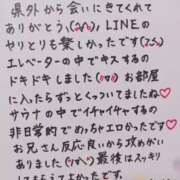 県外から会いにきてくれて
ありがとう(^^) LINEの
やりとりも楽しかったです(^^)
エレベーターの中でキスするの
ドキドキしました(^^) お部屋
に入ったらずっとくっついてましたね♡
サウナの中でイチャイチャするの
非日常的でめっちゃエロかったです♡
お兄さん反応良いから攻めがい
ありました(^^)♡ 最後はスッキリ
してもらえて良かったです。